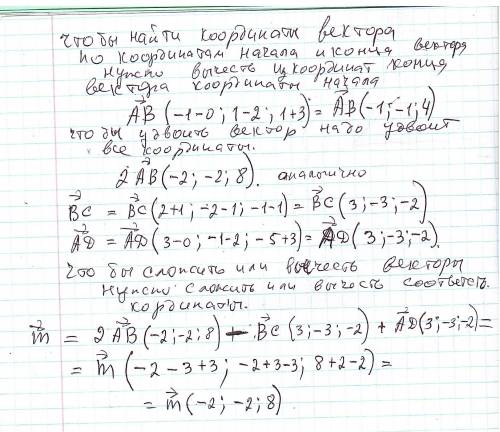 Чтобы найти координаты вектора
по координатам начала и конца вектора
нужно вычесть из координат конца
вектора координаты начала
A⃗B (-1-0; 1-2; 1+3) = A⃗B(-1; -1; 4)
что бы удвоить вектор надо удвоит
все координаты.
2A⃗B(-2; -2; 8). аналогично
B⃗C = B⃗C(2+1; -2-1; -1-1) = B⃗C(3; -3; -2)
A⃗D = A⃗D(3-0; -1-2; -5+3) = A⃗D(3; -3; -2).
Что бы сложить или вычесть векторы
нужно сложить или вычесть соответств.
кординаты.
m⃗ = 2A⃗B(-2; -2; 8) - B⃗C(3; -3; -2) + A⃗D(3; -3; -2) =
= m⃗(-2-3+3; -2+3-3; 8+2-2) =
= m⃗(-2; -2; 8)